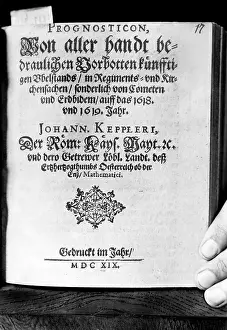 17
PROGNOSTICON,
Von aller handt be-
draulichen Vorbotten künfftigen
Vbelstands / in Regiments- vnd Kir-
chensachen / sonderlich von Cometen
vnd Erdbidem / auff das 1618.
vnd 1619. Jahr.
JOHANN. KEPPLERI,
Der Röm: Käys. Mayt. ꝛc.
vnd dero Getrewer Löbl. Landt. deß
Ertzhertzogthumbs Oesterreich ob der
Enß / Mathematici.
Gedruckt im Jahr /
M DC XIX.